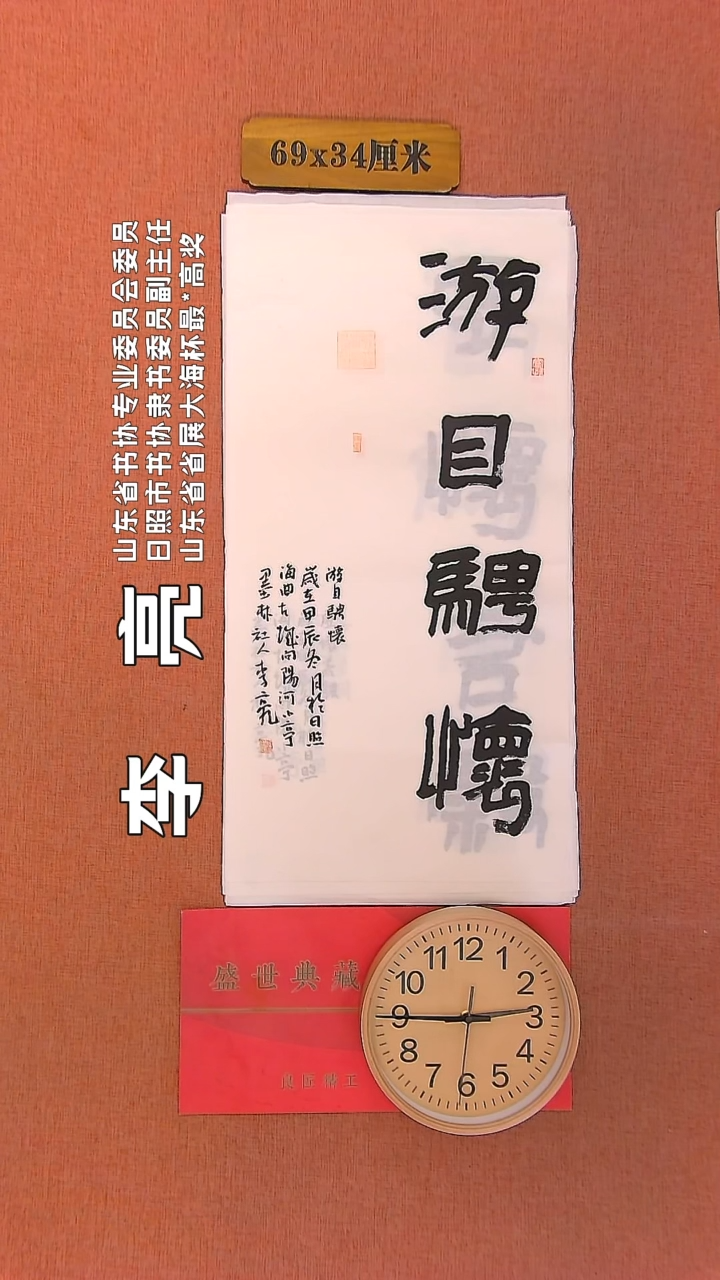 69x34厘米
山东省书协专业委员会委员
日照市书协隶书委员副主任
山东省省展大海杯最*高奖
李亮
游目骋懷
游目骋懷
歲在甲辰冬月於日照
海曲古城向陽河小亭
墨林社人李亮
盛世典藏
良匠精工
12
1
2
3
4
5
6
7
8
9
10
11